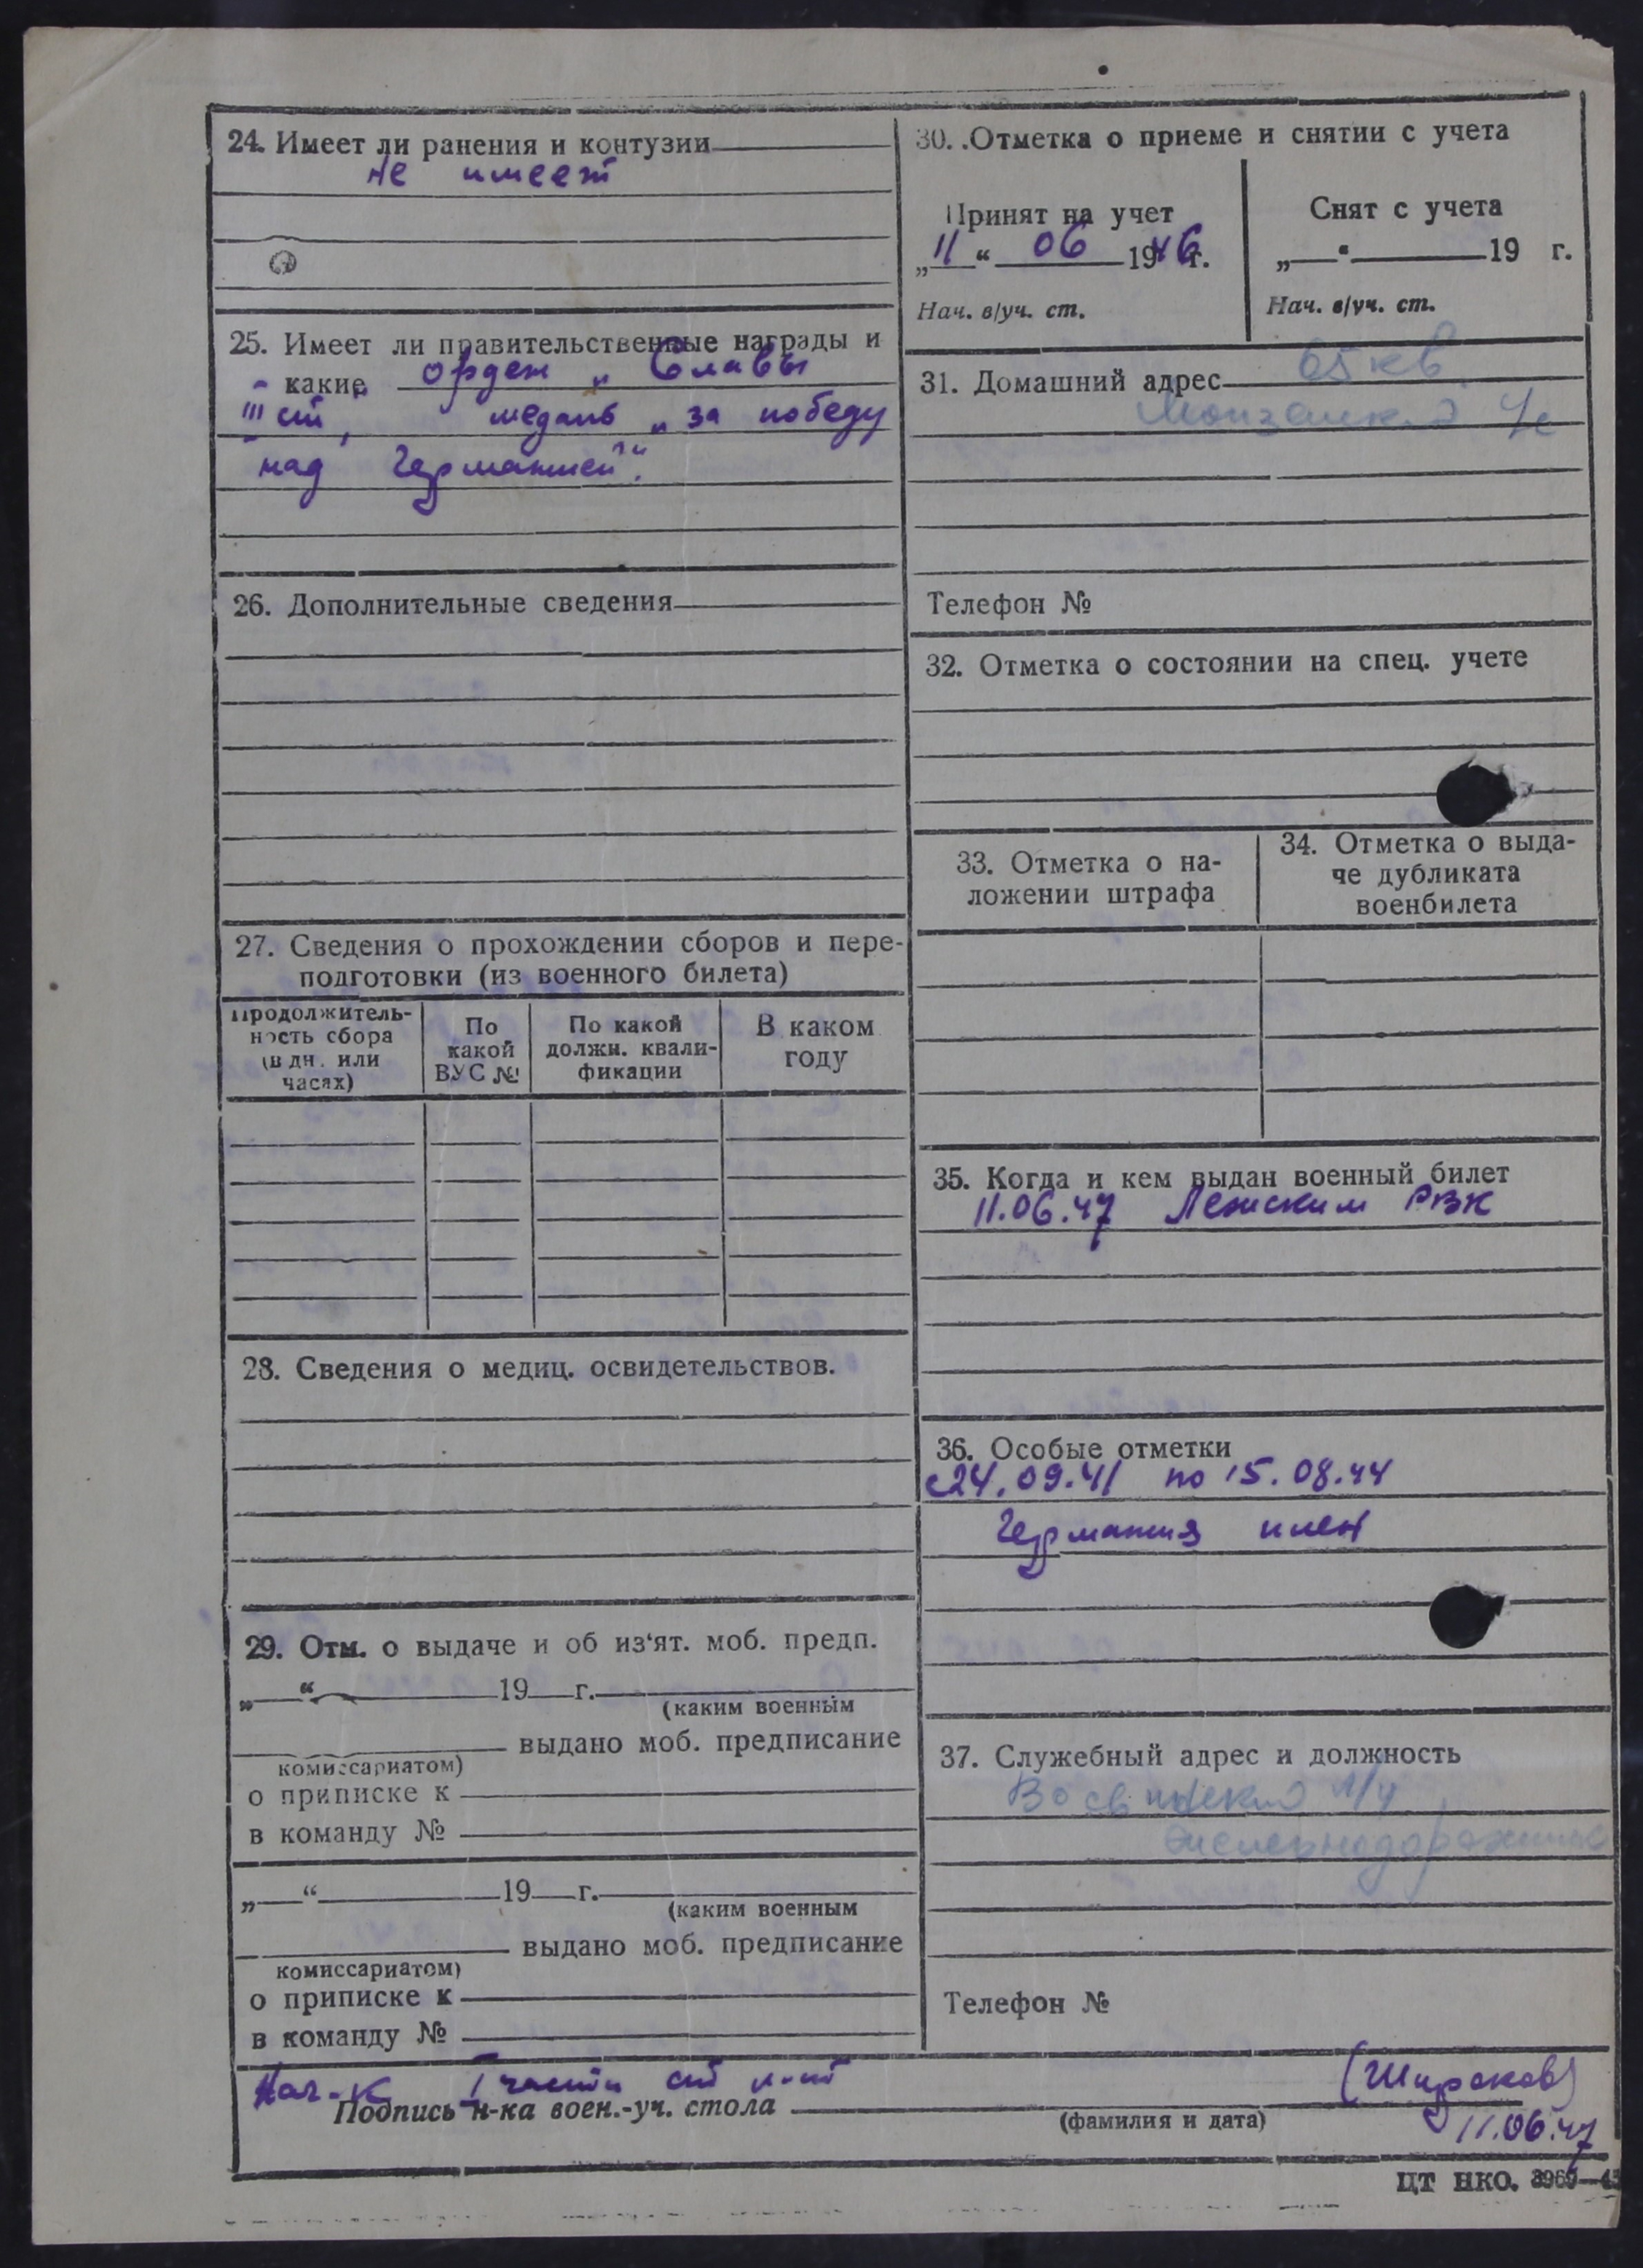 24. Имеет ли ранения и контузии
не имеет
25. Имеет ли правительственные награды и
какие орден „Славы
III ст", медаль „за победу
над Германией".
26. Дополнительные сведения
27. Сведения о прохождении сборов и пере-
подготовки (из военного билета)
Продолжитель-
ность сбора
(в дн. или
часах)
По
какой
ВУС №
По какой
должн. квали-
фикации
В каком
году
28. Сведения о медиц. освидетельствов.
29. Отм. о выдаче и об из‘ят. моб. предп.
„ “ 19 г.
(каким военным
выдано моб. предписание
комиссариатом)
о приписке к
в команду №
„ “ 19 г.
(каким военным
выдано моб. предписание
комиссариатом)
о приписке к
в команду №
30. Отметка о приеме и снятии с учета
Принят на учет
„11“ 06 1946 г.
Нач. в/уч. ст.
Снят с учета
„ “ 19 г.
Нач. в/уч. ст.
31. Домашний адрес 65 кв.
Телефон №
32. Отметка о состоянии на спец. учете
33. Отметка о на-
ложении штрафа
34. Отметка о выда-
че дубликата
военбилета
35. Когда и кем выдан военный билет
11.06.47 Лежским РВК
36. Особые отметки
с 24.09.41 по 15.08.44
Германия плен
37. Служебный адрес и должность
железнодорожный
Телефон №
Нач-к I части ст л-нт (Широков)
Подпись н-ка воен.-уч. стола
(фамилия и дата)
11.06.47
ЦТ НКО. 3969—45